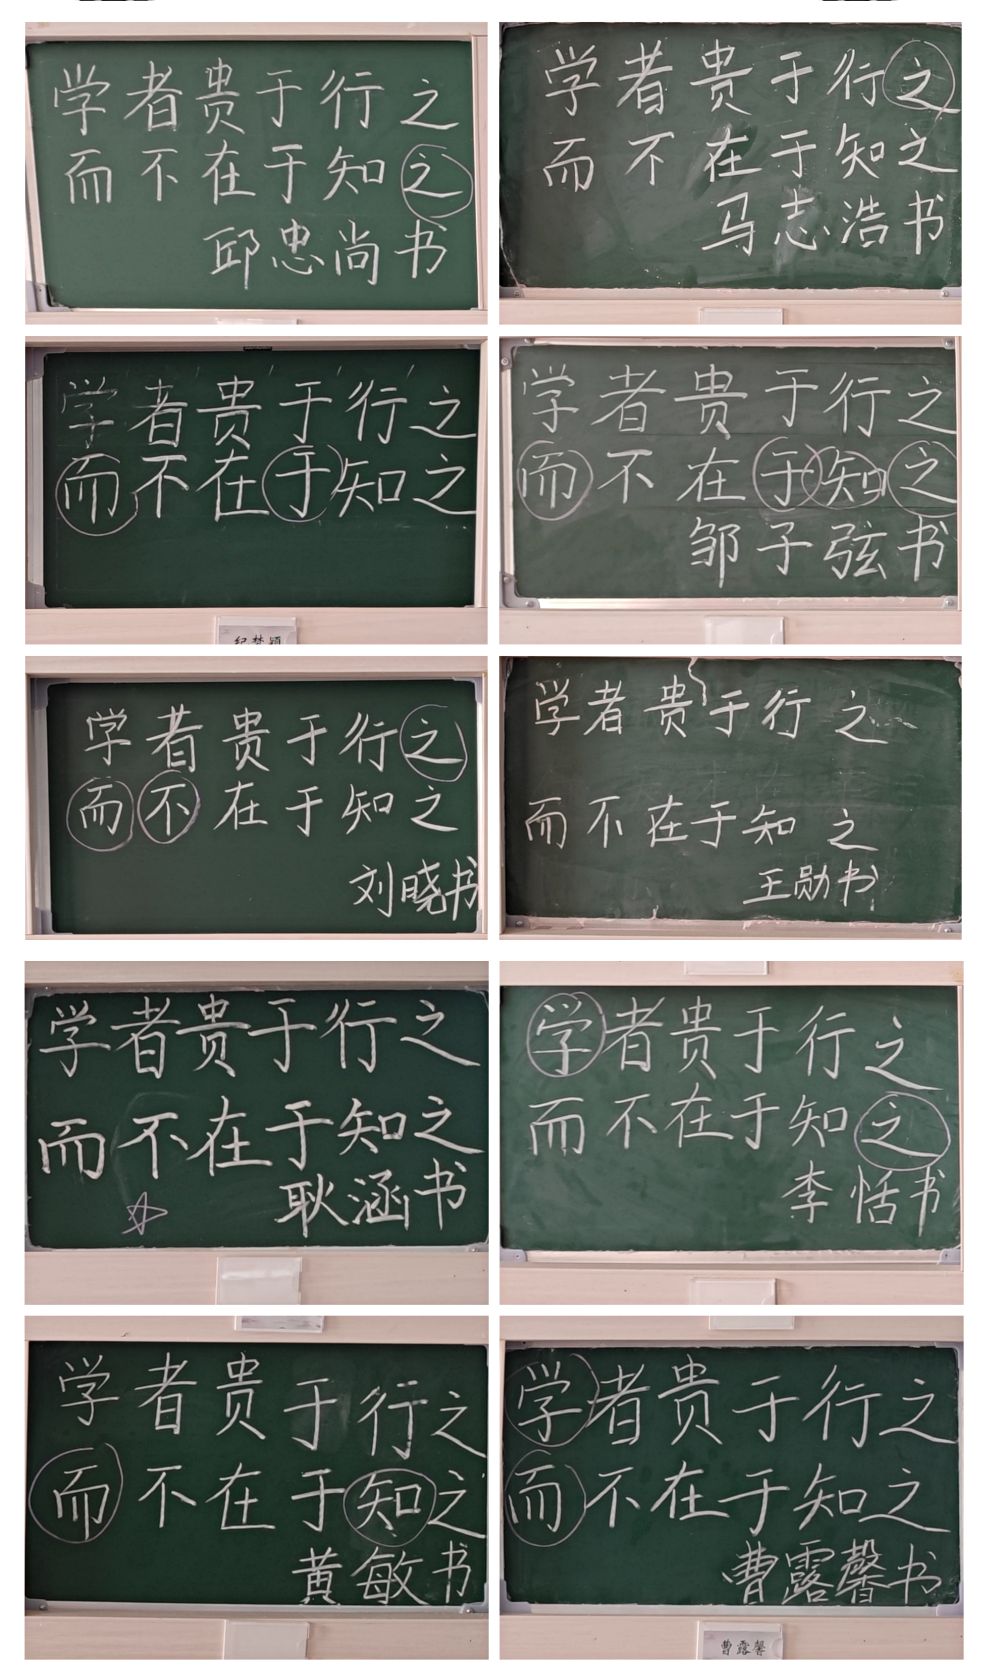 学者贵于行之
而不在于知之
邱忠尚书
学者贵于行之
而不在于知之
马志浩书
学者贵于行之
而不在于知之
纪梦颖
学者贵于行之
而不在于知之
邹子弦书
学者贵于行之
而不在于知之
刘晓书
学者贵于行之
而不在于知之
王勋书
学者贵于行之
而不在于知之
耿涵书
学者贵于行之
而不在于知之
李恬书
学者贵于行之
而不在于知之
黄敏书
学者贵于行之
而不在于知之
曹露馨书
曹露馨